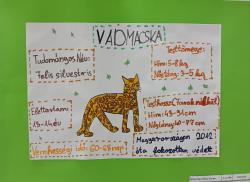 VADMACSKA
Tudományos Név:
Felis silvestris
Testtömege:
Hím: 5-8 kg
Nőstény: 3-5 kg
Élettartam:
13-14 év
Testhossz (farok nélkül)
Hím: 43-91 cm
Nőstény: 40-77 cm
Vemhességi idő: 60-68 nap
Magyarországon 2012
óta fokozottan védett